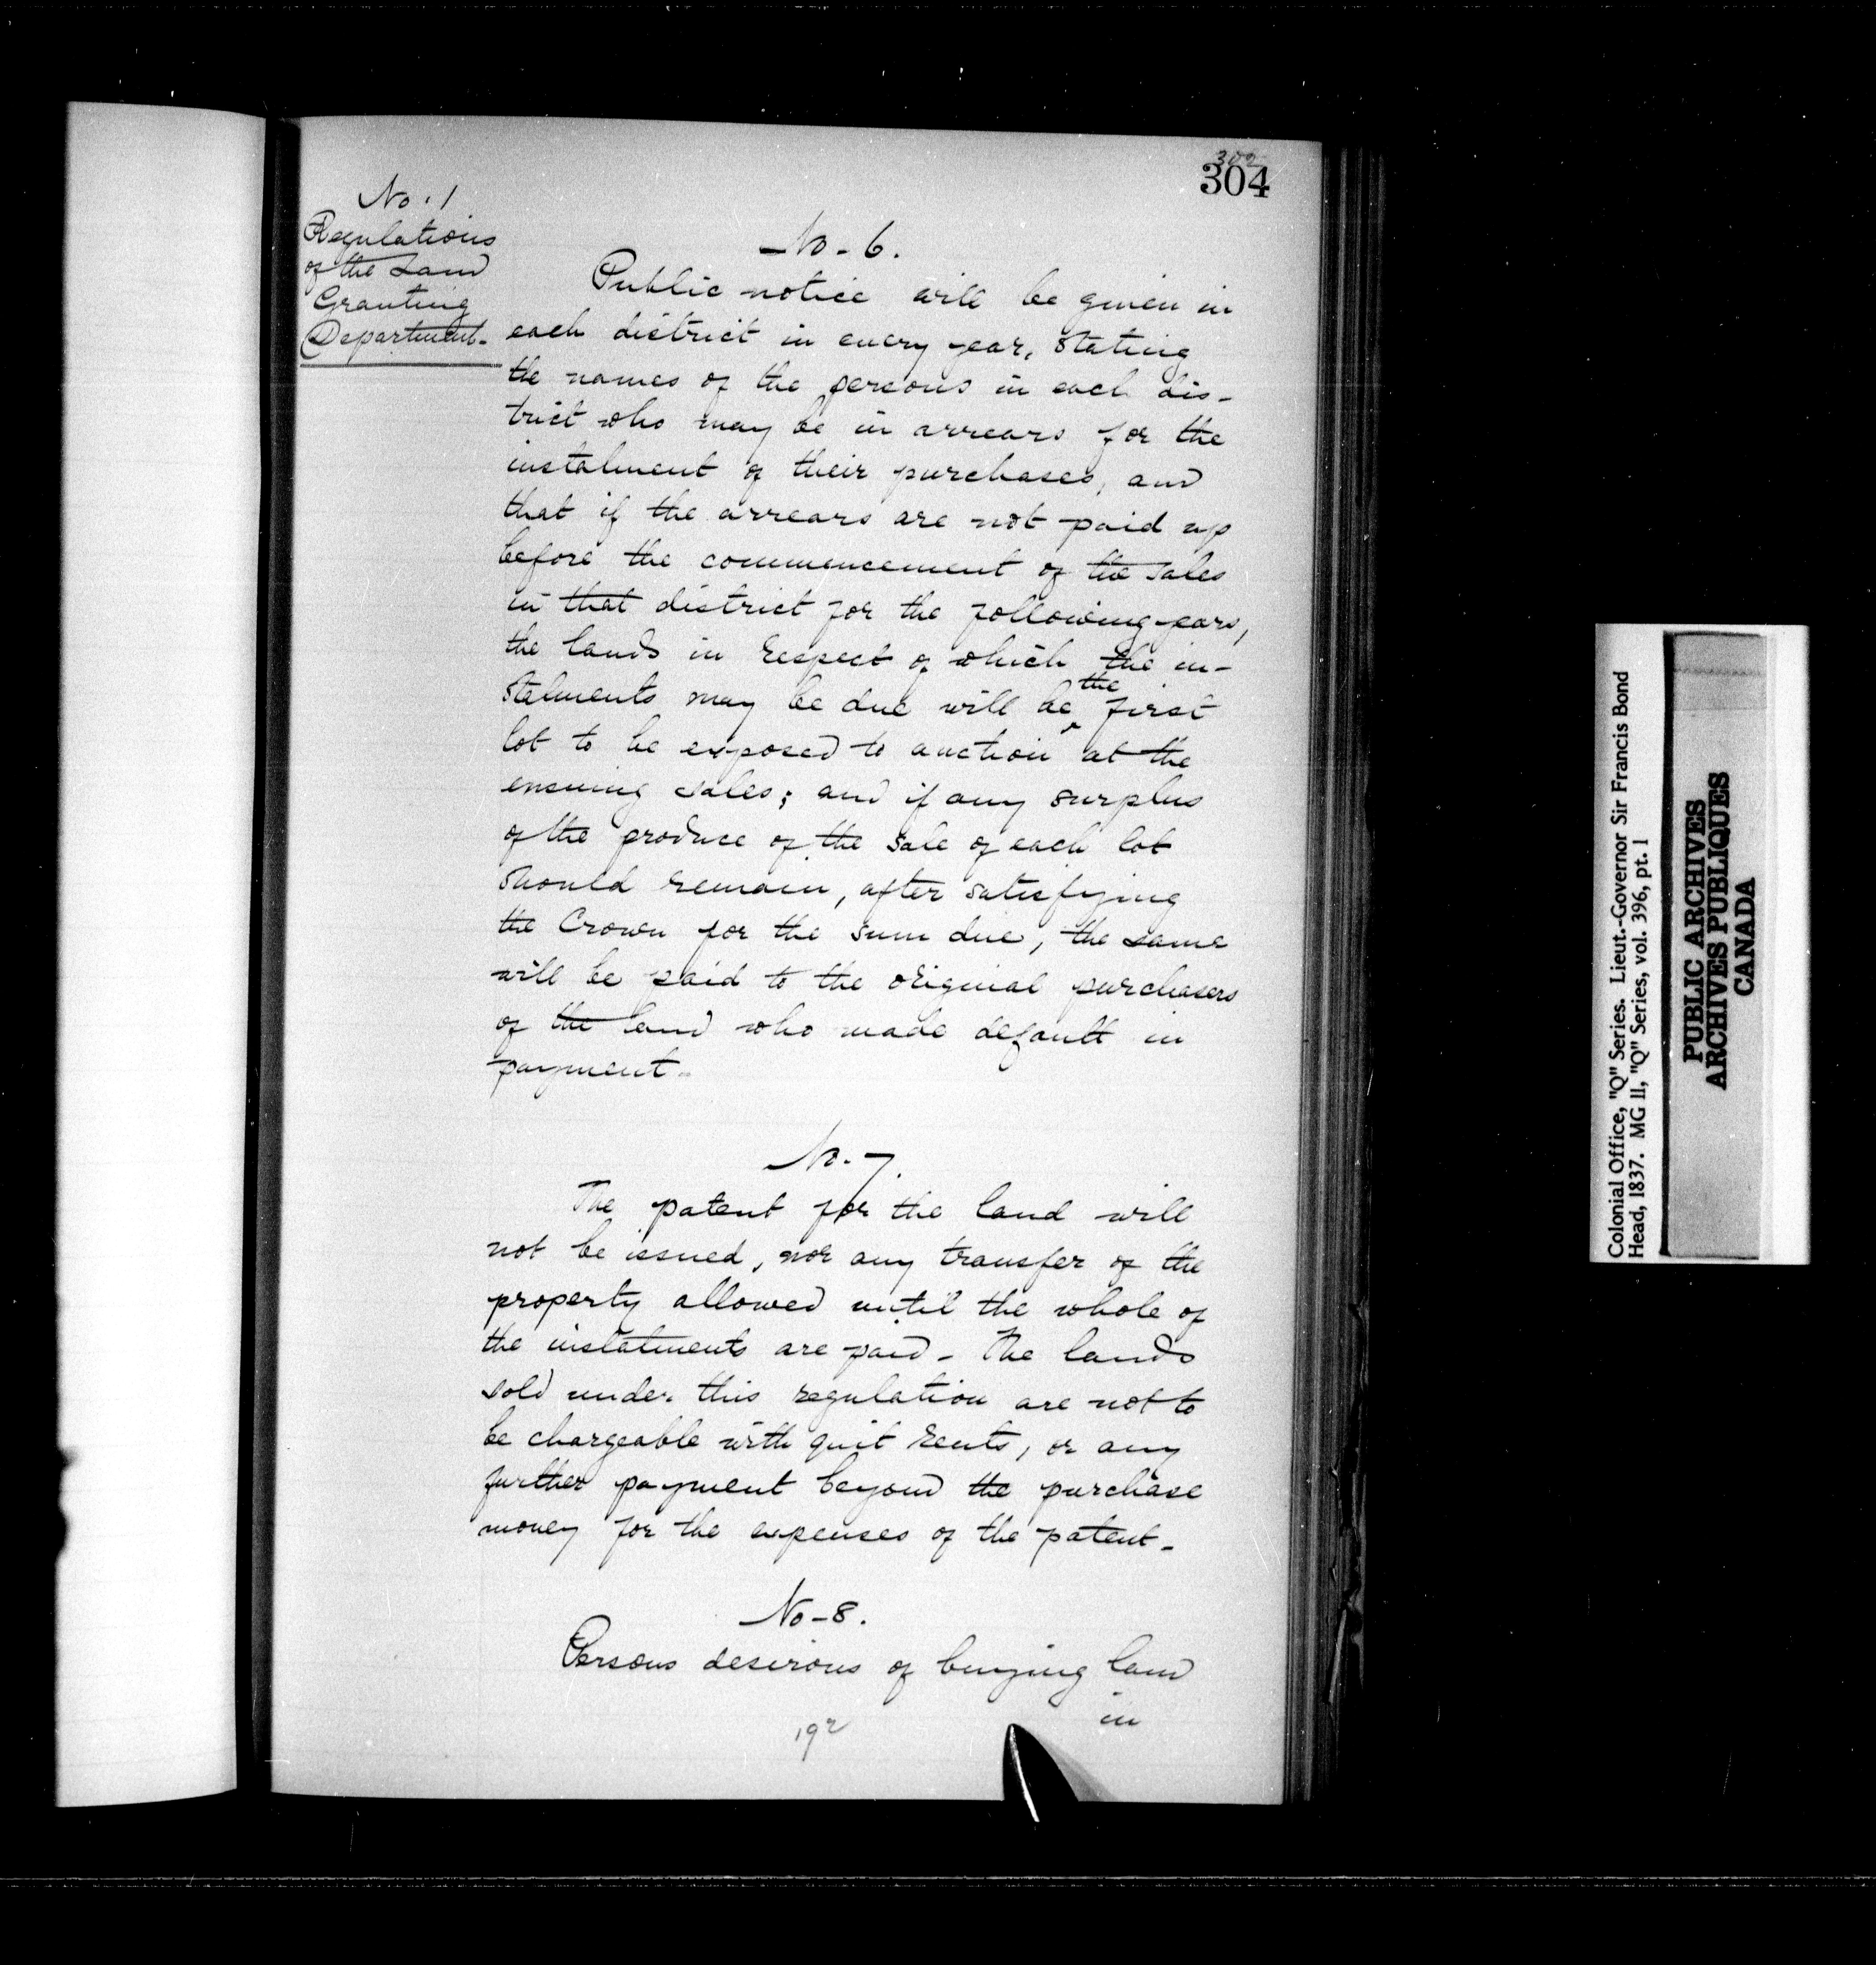 302
304
No. 1
Regulations
of the Land
Granting
Department.
No. 6.
Public notice will be given in
each district in every year, stating
the names of the persons in each dis-
trict who may be in arrears for the
instalment of their purchases, and
that if the arrears are not paid up
before the commencement of the sales
in that district for the following years,
the lands in respect of which the in-
stalments may be due will be the first
lot to be exposed to auction at the
ensuing sales; and if any surplus
of the produce of the sale of each lot
should remain, after satisfying
the Crown for the sum due, the same
will be said to the original purchasers
of the land who made default in
payment.
No. 7.
The patent for the land will
not be issued, nor any transfer of the
property allowed until the whole of
the instalments are paid - The lands
sold under this regulation are not to
be chargeable with quit rents, or any
further payment beyond the purchase
money for the expenses of the patent.
No-8.
Persons desirous of buying land
in
192
Colonial Office, "Q" Series. Lieut.-Governor Sir Francis Bond
Head, 1837. MG 11, "Q" Series, vol. 396, pt. 1
PUBLIC ARCHIVES
ARCHIVES PUBLIQUES
CANADA